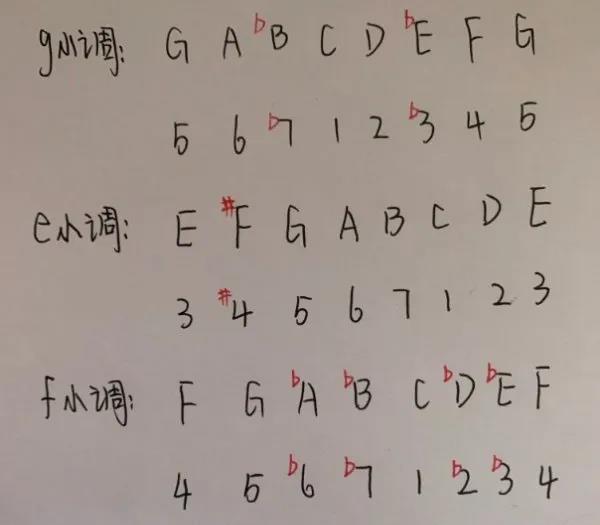 g小调: G A ♭B C D ♭E F G
5 6 ♭7 1 2 ♭3 4 5
e小调: E #F G A B C D E
3 #4 5 6 7 1 2 3
f小调: F G ♭A ♭B C ♭D ♭E F
4 5 ♭6 ♭7 1 ♭2 ♭3 4